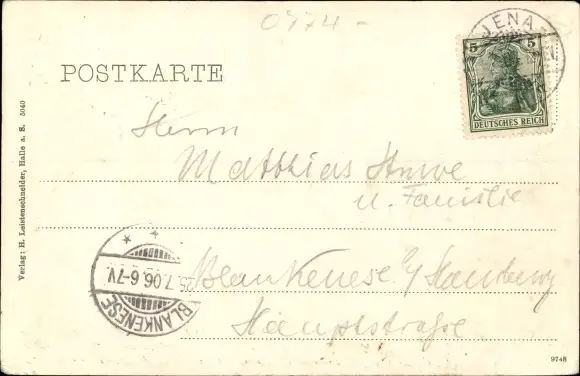 0474-
JENA
5 5
DEUTSCHES REICH
POSTKARTE
Herrn
Matthias Struve
u. Familie
Blankenese a/Hamburg
Hauptstraße
25.7.06.6-7V
BLANKENESE
Verlag: H. Leistenschneider, Halle a. S. 5040
9748